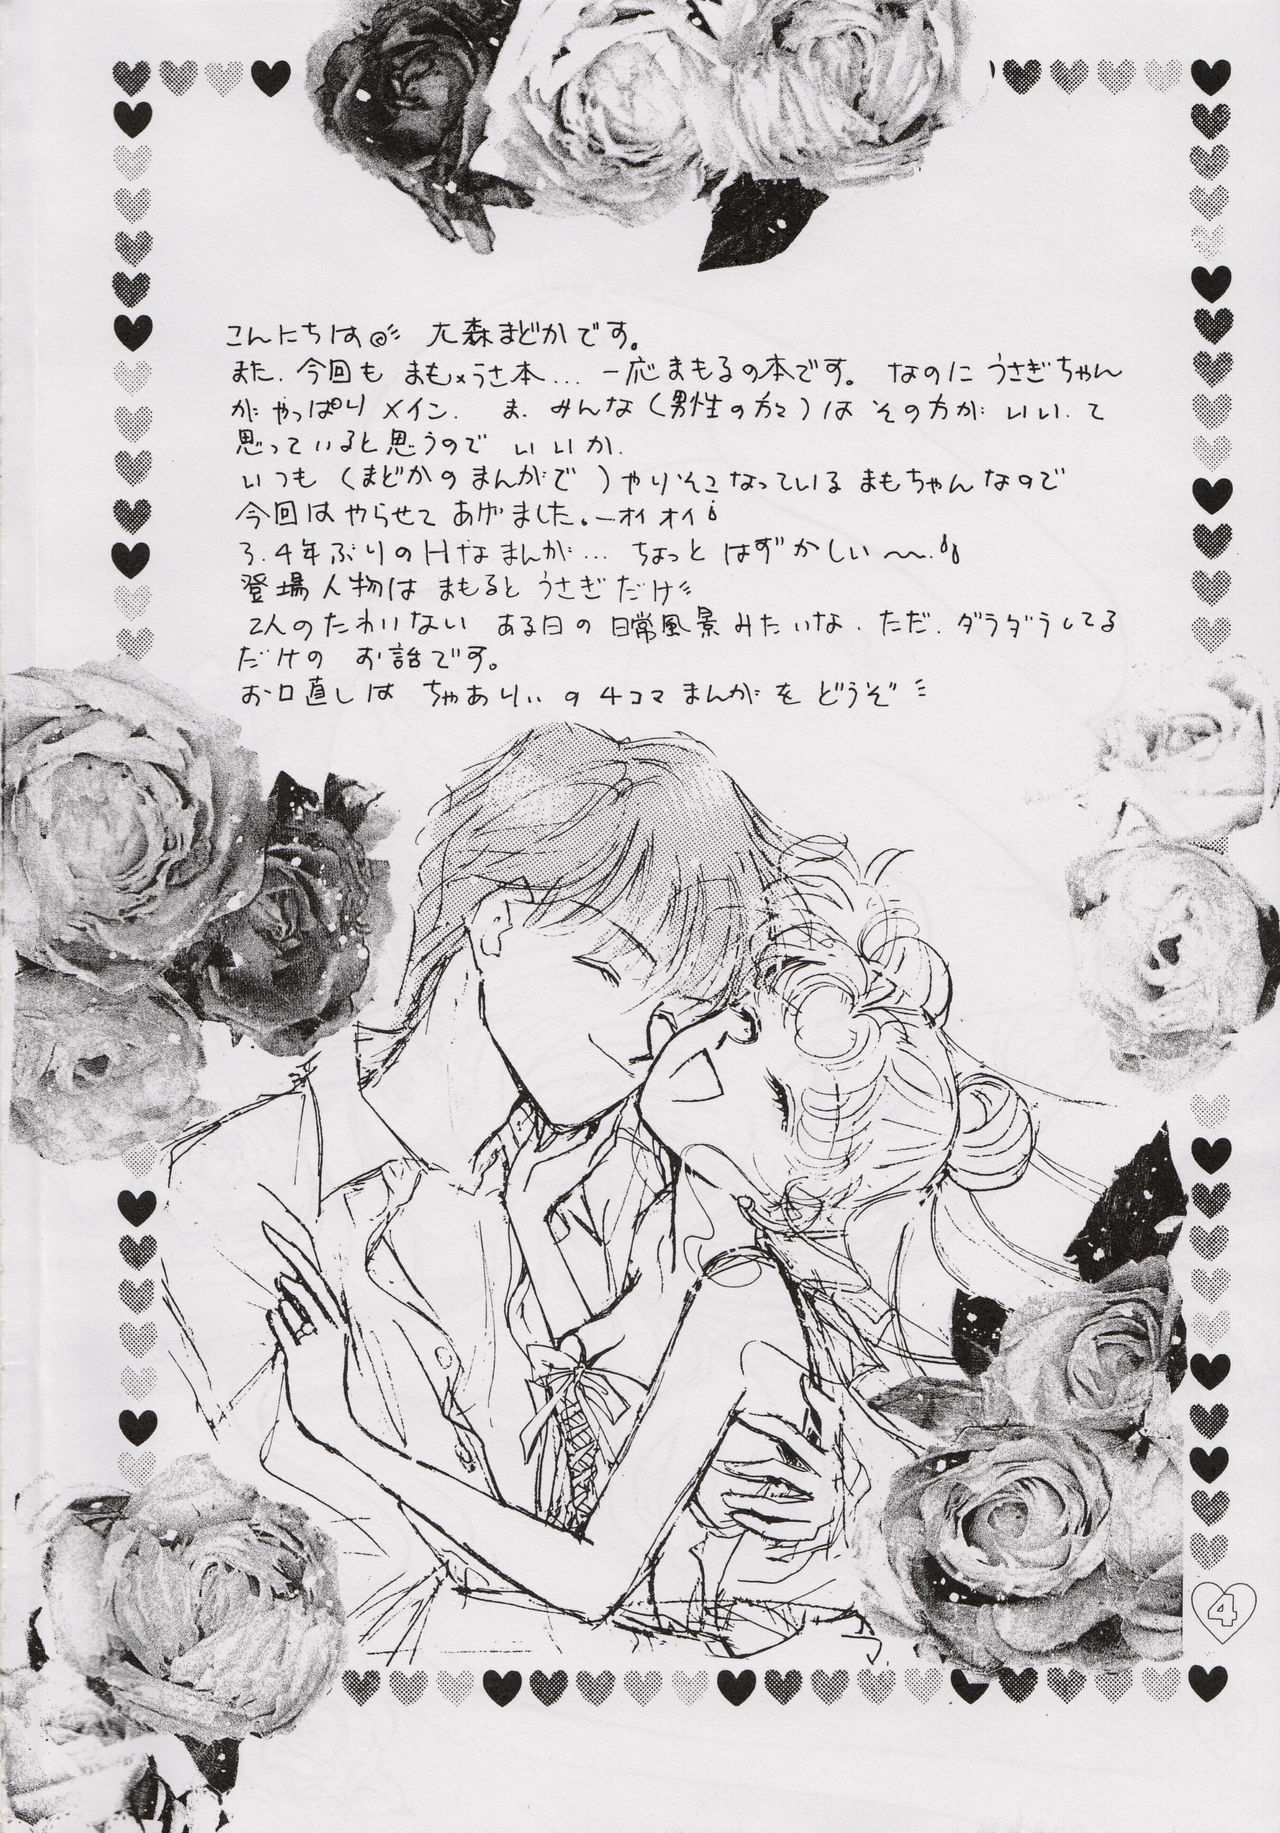 こんにちは@ 大森まどかです。
また.今回も まも×うさ本... 一応まもるの本です。 なのに うさぎちゃん
がやっぱり メイン. ま.みんな(男性の方々)は その方が いい.て
思っていると思うので いいか.
いつも (まどかの まんがで )やりそこなっている まもちゃんなので
今回は やらせて あげました。—オイ オイ
3.4年ぶりのHなまんが... ちょっと はずかしい〜〜.
登場人物は まもると うさぎだけ
2人のたわいない ある日の 日常風景みたいな.ただ.ダラダラしてる
だけの お話です。
お口直しは ちゃありぃの 4コマ まんがを どうぞ
4